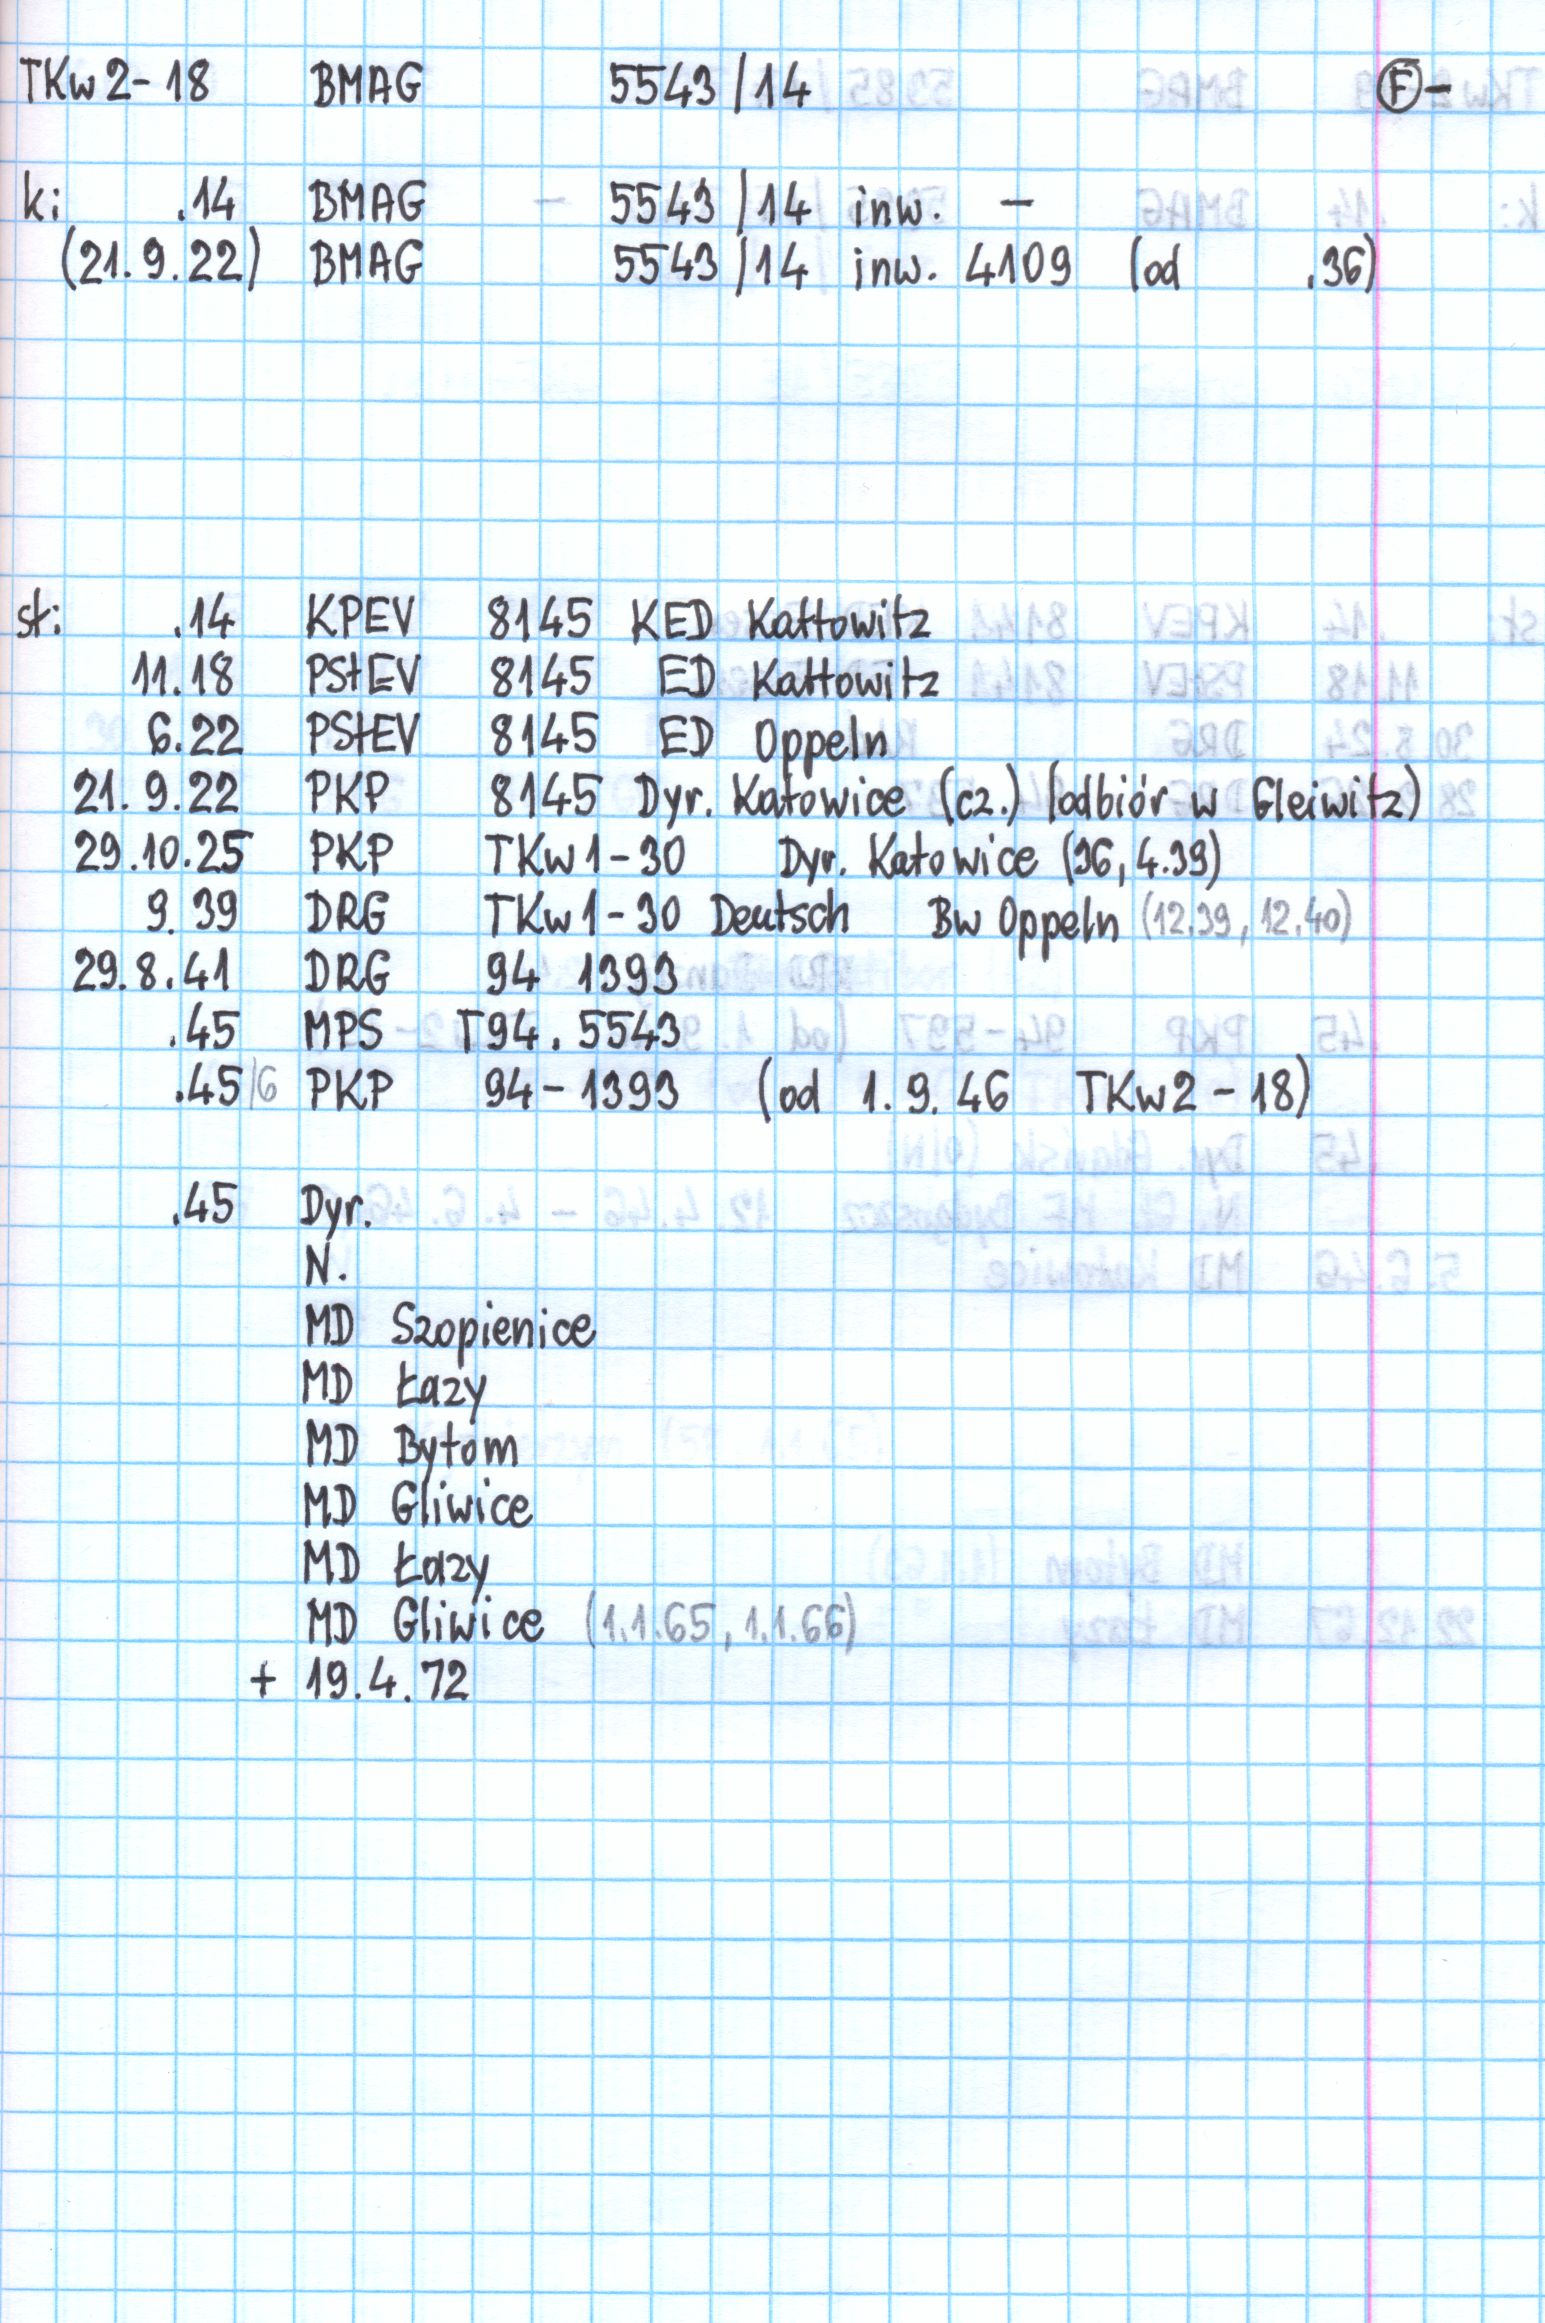 TKw2-18 BMAG 5543/14 F-
k: .14 BMAG 5543/14 inw. -
(21.9.22) BMAG 5543/14 inw. 4109 (od .36)
st: .14 KPEV 8145 KED Kattowitz
11.18 PStEV 8145 ED Kattowitz
6.22 PStEV 8145 ED Oppeln
21.9.22 PKP 8145 Dyr. Katowice (cz.) (odbiór w Gleiwitz)
29.10.25 PKP TKw1-30 Dyr. Katowice (36, 4.39)
9.39 DRG TKw1-30 Deutsch Bw Oppeln (12.39, 12.40)
29.8.41 DRG 94 1393
.45 MPS T94.5543
.45/6 PKP 94-1393 (od 1.9.46 TKw2-18)
.45 Dyr.
N.
MD Szopienice
MD Łazy
MD Bytom
MD Gliwice
MD Łazy
MD Gliwice (1.1.65, 1.1.66)
+ 19.4.72